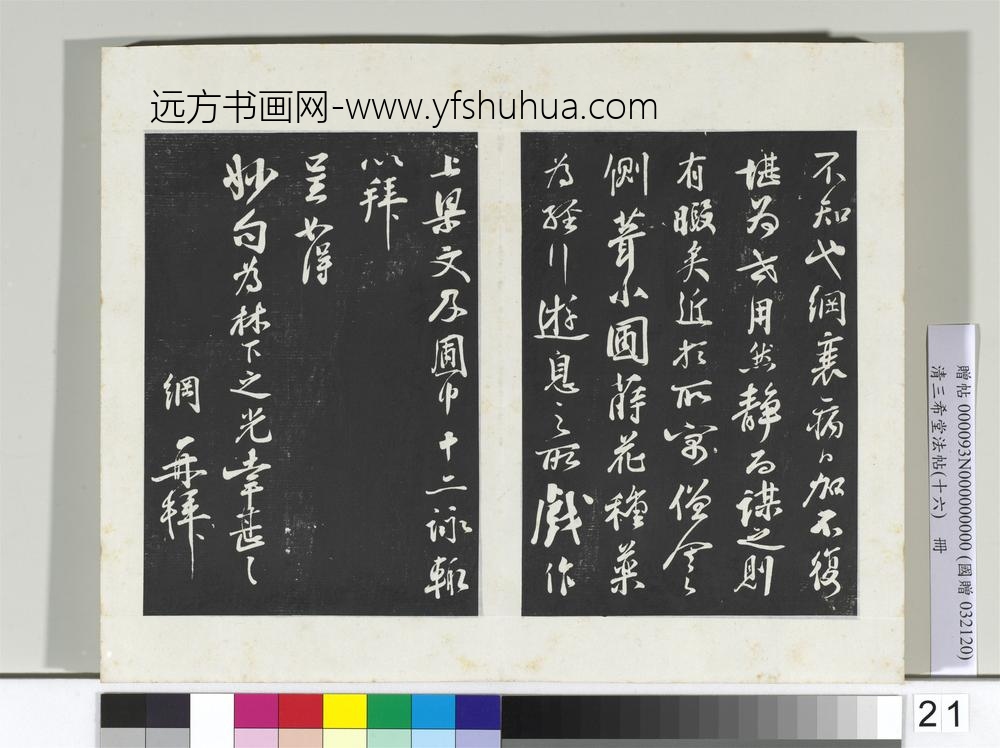 远方书画网-www.yfshuhua.com
不知也綱衰病日加不復
堪為世用然静而謀之則
有暇矣近於所寓僧舍之
側葺小圃蒔花種藥
為經行遊息之所戲作
上梁文及圃中十二詠輒
以拜
呈如得
妙句為林下之光幸甚々
綱 再拜
贈帖 000093N000000000 (國贈 032120)
清三希堂法帖(十六) 冊
21